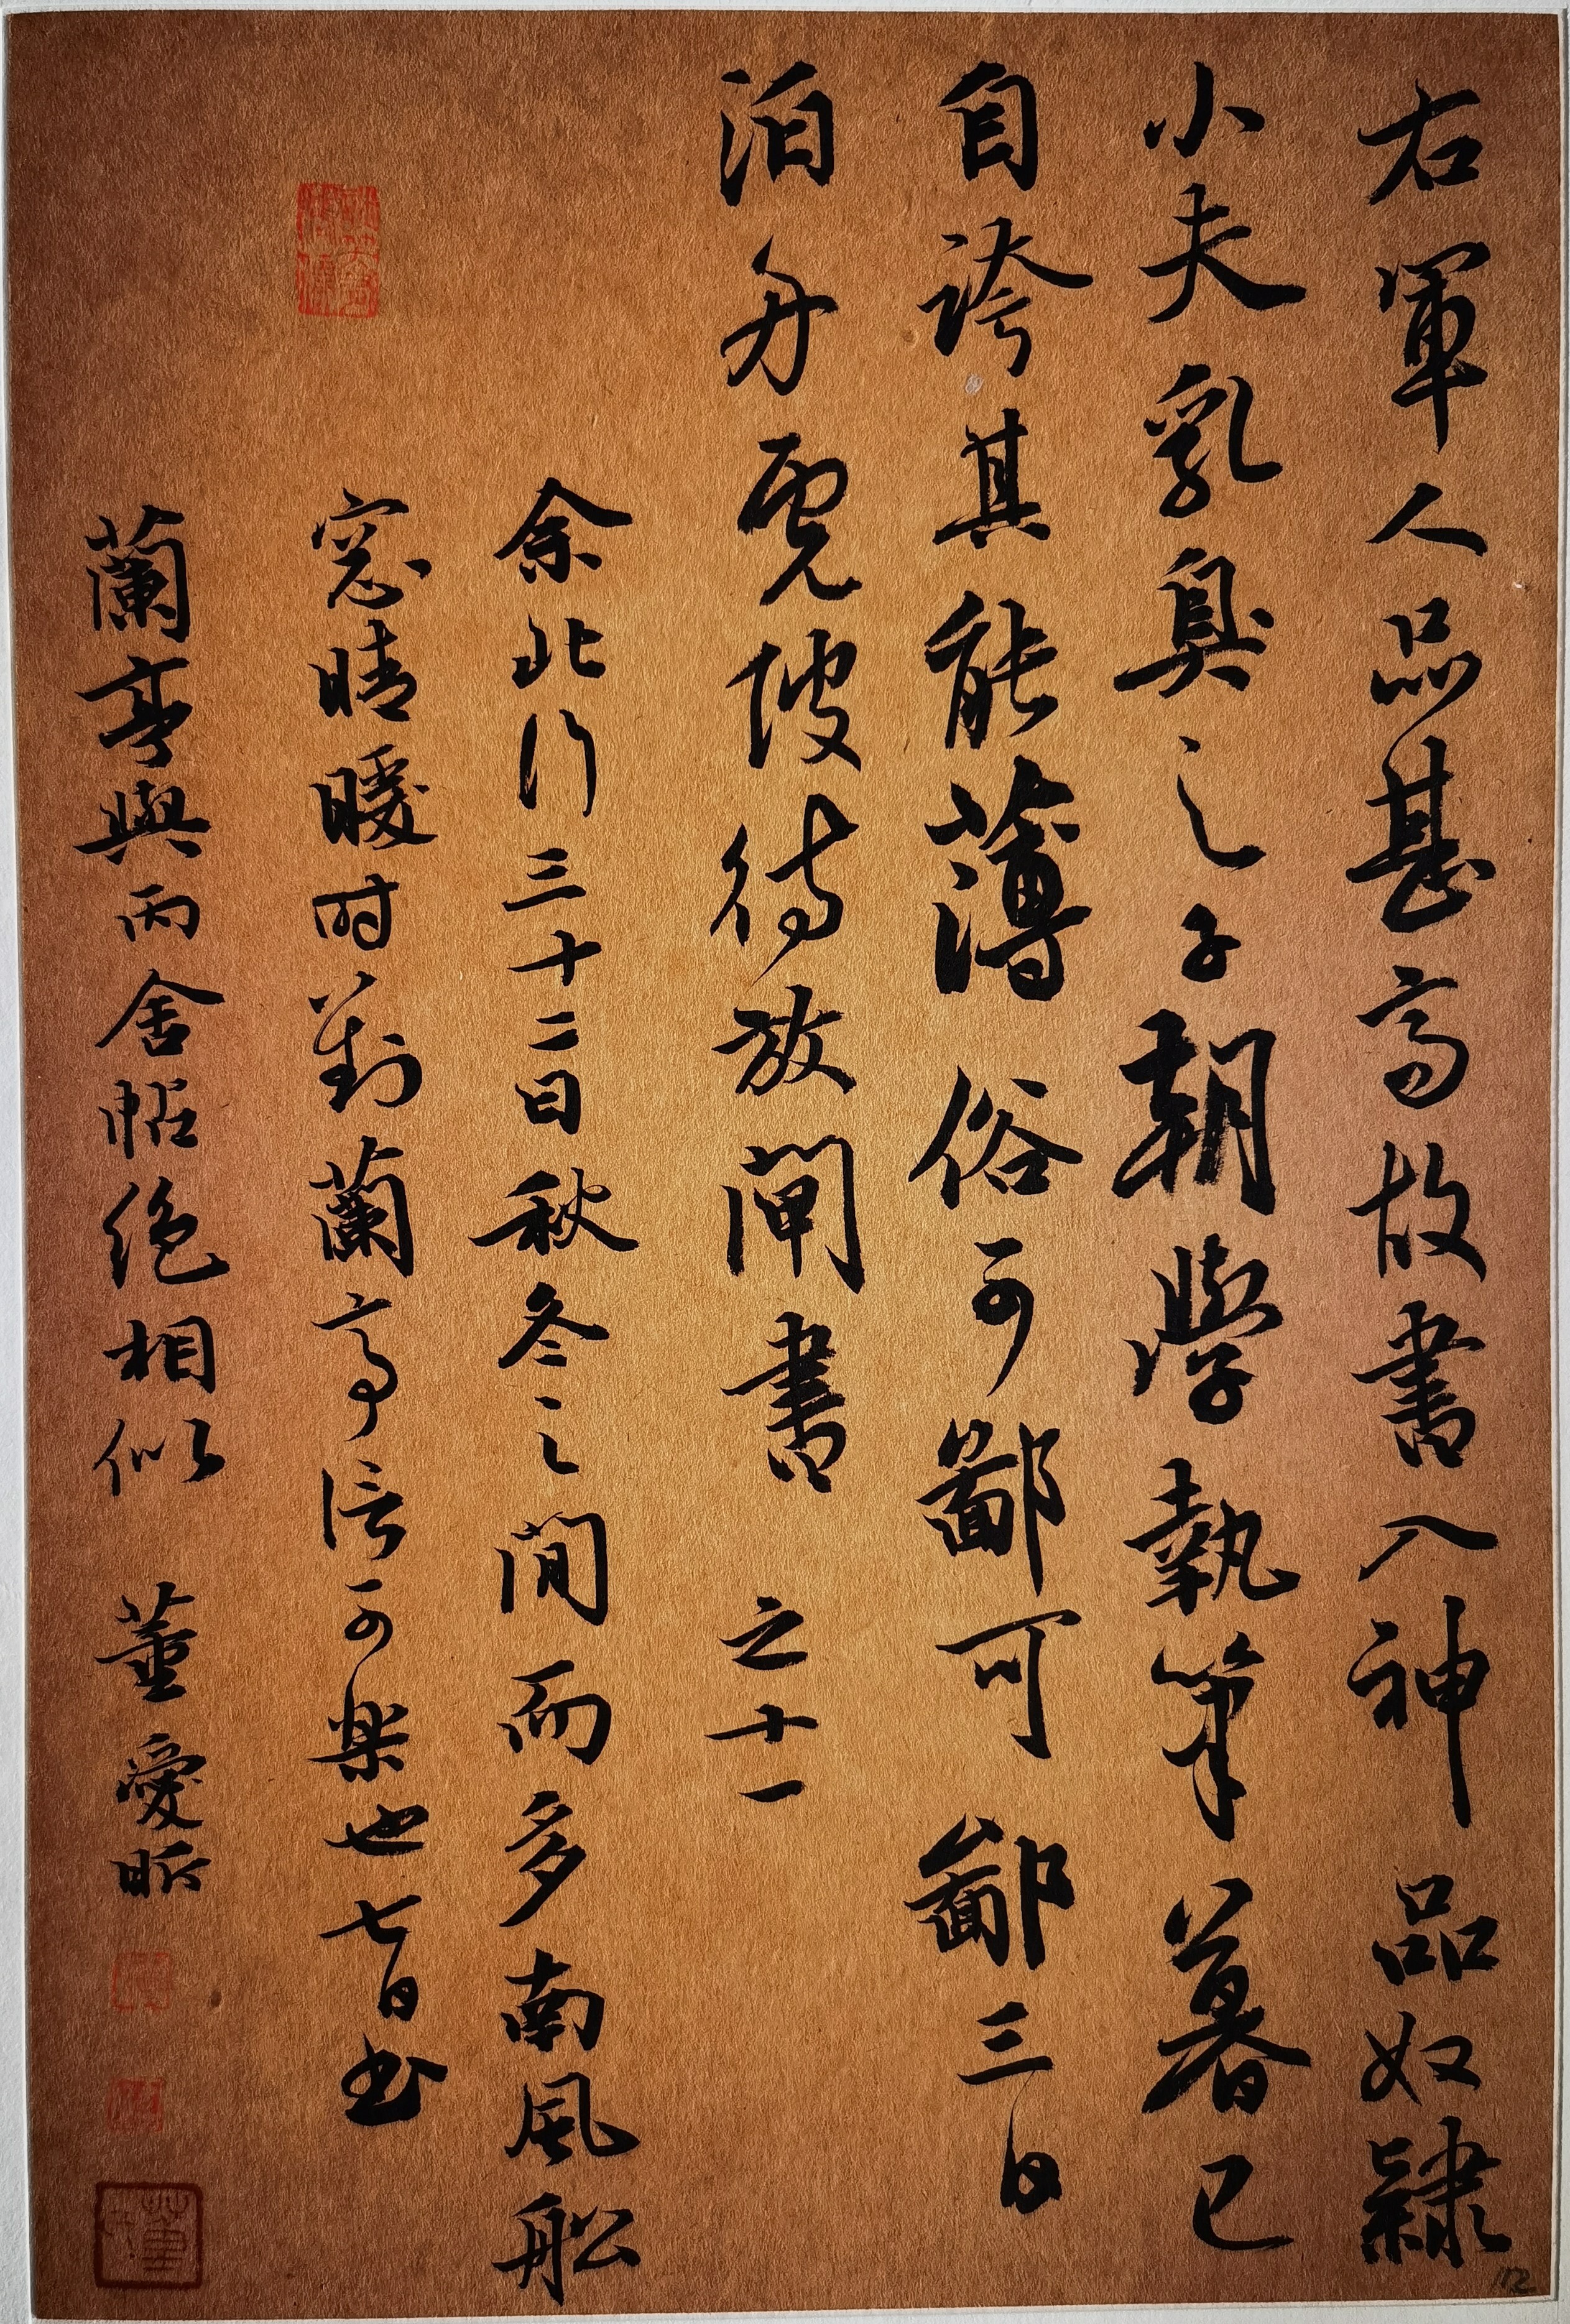 右軍人品甚高故書入神品奴隸
小夫乳臭之子朝學執筆暮已
自誇其能薄俗可鄙可鄙三日
泊舟虎陂待放閘書 之十一
余北行三十二日秋冬之間而多南風船
窓晴暖时對蘭亭信可樂也七日书
蘭亭與丙舍帖絶相似 董愛昕
112